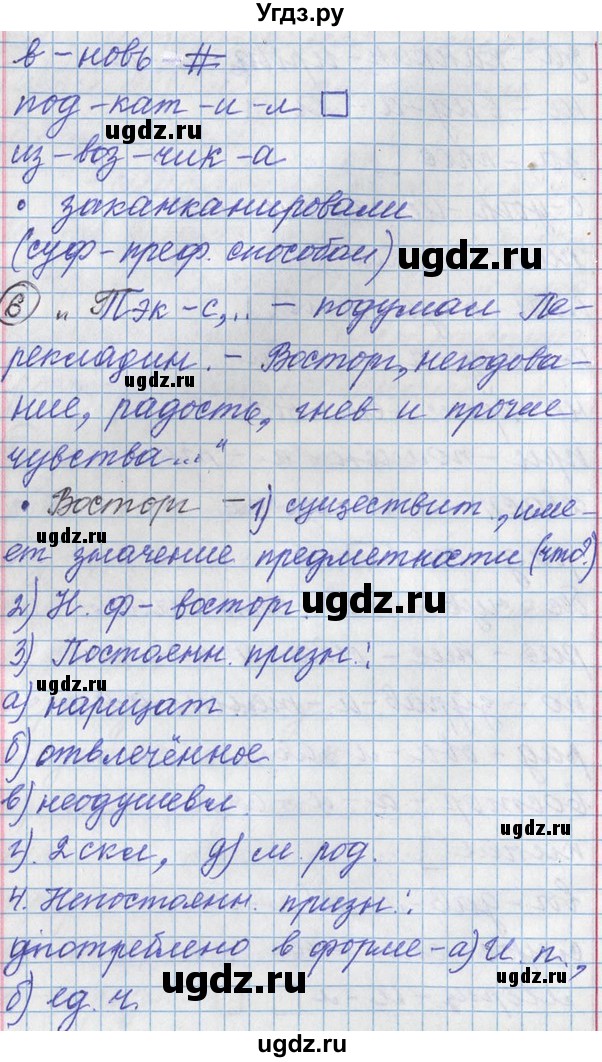 Угдз.ру
в-новь #
под-кат-и-л
ugdz.ru
из-воз-чик-а
• заканканировали
ugdz.ru
(суф-преф. способом)
6 „Тэк-с,.. – подумал Пе-
рекладин. – Восторг, негодова-
ugdz.ru
ние, радость, гнев и прочие
чувства..."
ugdz.ru
• Восторг – 1) существит., име-
ет значение предметности (что?)
ugdz.ru
2) Н. ф – восторг.
3) Постоянн. призн.:
ugdz.ru
а) нарицат.
б) отвлечённое
ugdz.ru
в) неодушевл.
г). 2 скл, д) м. род.
ugdz.ru
4. Непостоянн. призн.:
употреблено в форме – а) И. п.,
ugdz.ru
б) ед. ч.
ugdz.ru